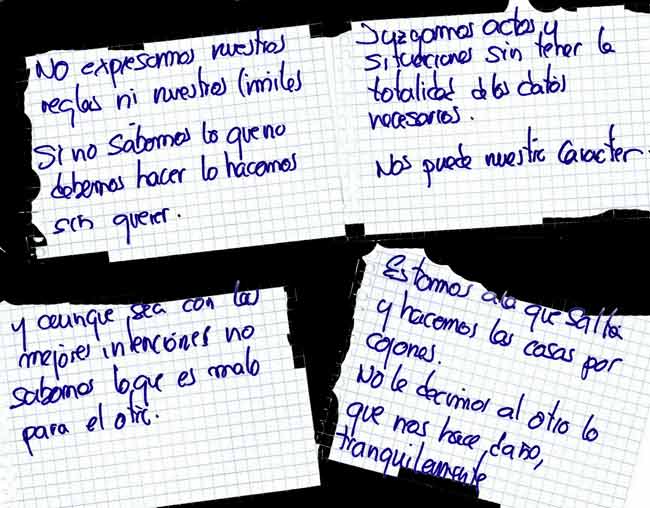 No expresamos nuestras
reglas ni nuestros límites
Si no sabemos lo que no
debemos hacer lo hacemos
sin querer.
Juzgamos actos y
situaciones sin tener la
totalidad de los datos
necesarios.
Nos puede nuestro caracter.
y aunque sea con las
mejores intenciones no
sabemos lo que es malo
para el otro.
Estamos a la que salta
y hacemos las cosas por
cojones.
No le decimos al otro lo
que nos hace daño,
tranquilamente